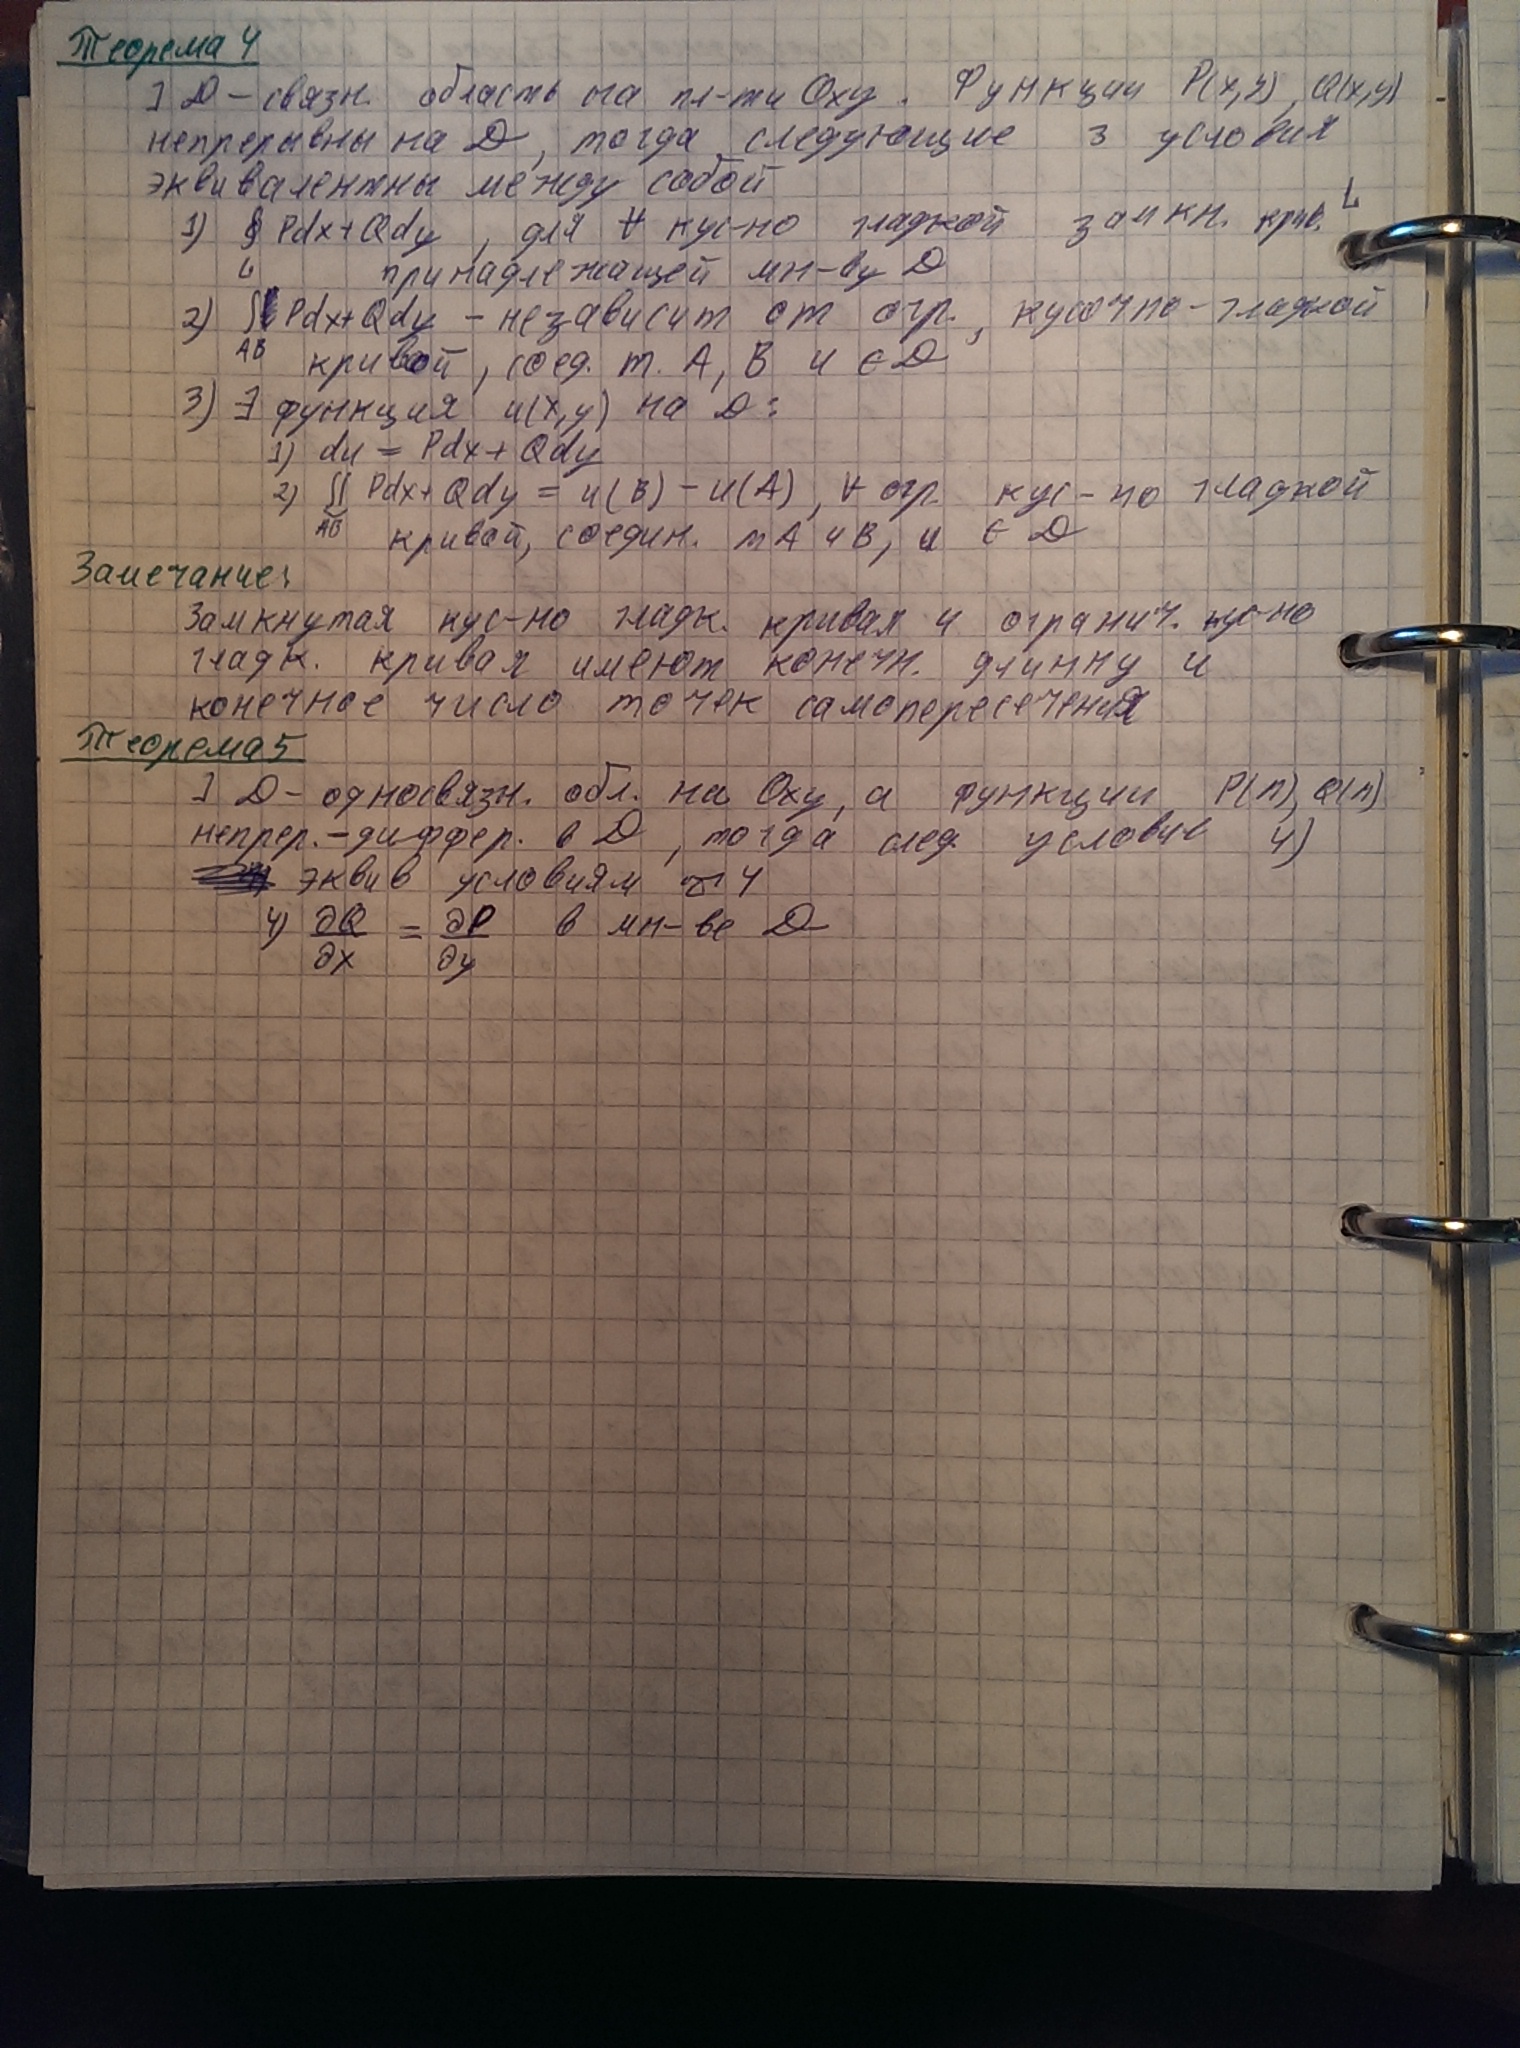 Теорема 4
] D – связн. область на пл-ти Oxy. Функции P(x,y), Q(x,y)
непрерывны на D, тогда следующие 3 условия
эквивалентны между собой
1) ∮ Pdx+Qdy, для ∀ кус-но гладкой замкн. крив. L
L принадлежащей мн-ву D
2) ∬ Pdx+Qdy – независит от огр., кусочно-гладкой
AB кривой, соед. т. A, B и ∈ D
3) ∃ функция u(x,y) на D:
1) du = Pdx+Qdy
2) ∬ Pdx+Qdy = u(B) – u(A), ∀ огр. кус-но гладкой
AB кривой, соедин. т A и B, и ∈ D
Замечание:
Замкнутая кус-но гладк. кривая и огранич. кус-но
гладк. кривая имеют конечн. длинну и
конечное число точек самопересечения
Теорема 5
] D – односвязн. обл. на Oxy, а функции P(п), Q(п)
непрер.-диффер. в D, тогда след. условие 4)
эквив условиям т 4
4) ∂Q/∂x = ∂P/∂y в мн-ве D